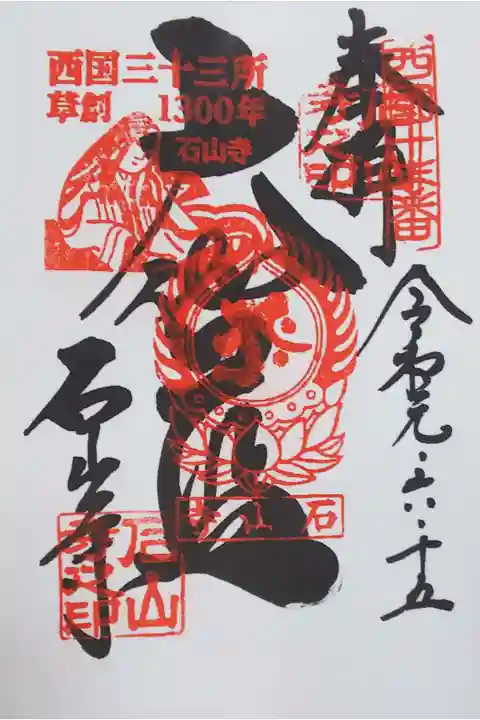 奉拝
西国十三番
令和元・六・十五
大伽藍
西国三十三所
草創 1300年
石山寺
石山寺
石山寺
石山寺之印